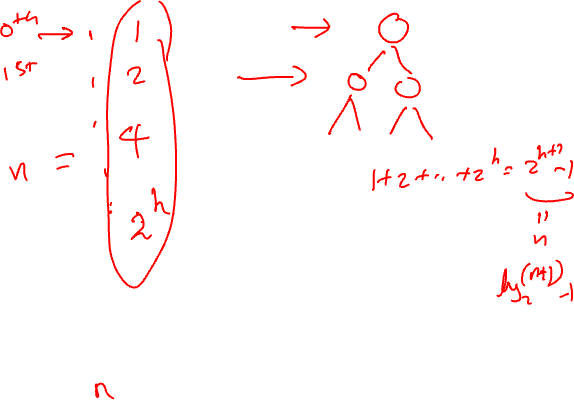 0th → 1 →
1st 2 →
4
n =
2^h
1+2+..+2^h = 2^{h+1}-1
=
n
log_2(n+1)-1
n